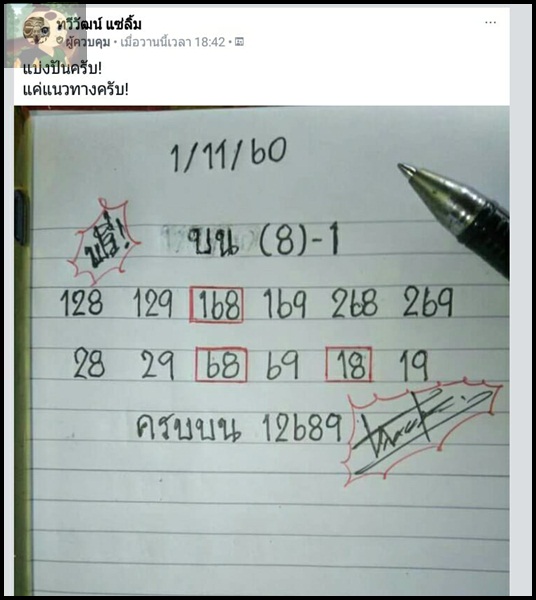 ทวีวัฒน์ แซ่ลิ้ม
ผู้ควบคุม · เมื่อวานนี้เวลา 18:42 ·
แบ่งปันครับ!
แค่แนวทางครับ!
1/11/60
ฟรี!
บน (8)-1
128 129 168 169 268 269
28 29 68 69 18 19
ครบบน 12689